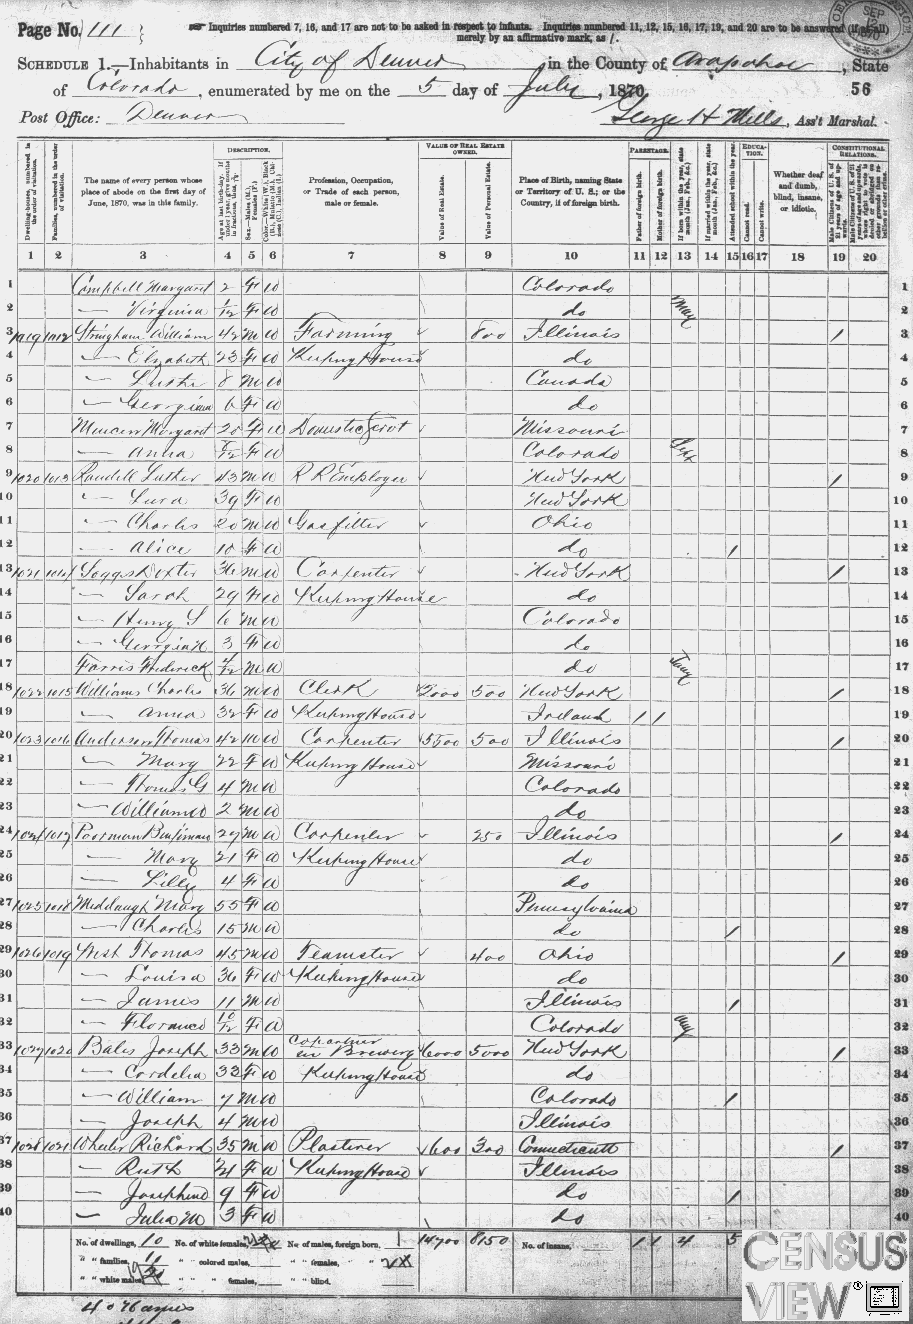 Page No. 111
☞ Inquiries numbered 7, 16, and 17 are not to be asked in respect to infants. Inquiries numbered 11, 12, 15, 16, 17, 19, and 20 are to be answered (if at all)
merely by an affirmative mark, as /.
SCHEDULE 1.—Inhabitants in City of Denver, in the County of Arapahoe, State
of Colorado, enumerated by me on the 5 day of July, 1870.
56
Post Office: Denver
George H Mills, Ass't Marshal.
DESCRIPTION. VALUE OF REAL ESTATE OWNED. PARENTAGE. EDUCATION. CONSTITUTIONAL RELATIONS.
Dwelling-houses, numbered in the order of visitation.
Families, numbered in the order of visitation.
The name of every person whose place of abode on the first day of June, 1870, was in this family.
Profession, Occupation, or Trade of each person, male or female.
Value of Real Estate.
Value of Personal Estate.
Place of Birth, naming State or Territory of U. S.; or the Country, if of foreign birth.
Father of foreign birth.
Mother of foreign birth.
Attended school within the year.
Cannot read.
Cannot write.
Whether deaf and dumb, blind, insane, or idiotic.
1 2 3 4 5 6 7 8 9 10 11 12 13 14 15 16 17 18 19 20
1 Campbell Margaret 2 F W Colorado 1
2 — Virginia 1/12 F W do May 2
3 1019 1012 Stringham William 42 M W Farming 800 Illinois / 3
4 — Elizabeth 23 F W Keeping House do 4
5 8 M W Canada 5
6 — Georgiana 6 F W do 6
7 Margaret 20 F W Domestic Missouri 7
8 — Anna F W Colorado 8
9 1020 1013 Randell Luther 43 M W R R Employee New York / 9
10 — Lura 39 F W New York 10
11 — Charles 20 M W Gasfitter Ohio 11
12 — Alice 10 F W do / 12
13 1021 1014 Dexter 36 M W Carpenter New York / 13
14 — Sarah 29 F W Keeping House do 14
15 — Henry S 6 M W Colorado 15
16 — Georgia 3 F W do 16
17 Farris Frederick M W do Jany 17
18 1022 1015 Williams Charles 36 M W Clerk 2000 500 New York / 18
19 — Anna 32 F W Keeping House Ireland / / 19
20 1023 1016 Anderson Thomas 42 M W Carpenter 5500 500 Illinois / 20
21 — Mary 22 F W Keeping House Missouri 21
22 — Thomas G 4 M W Colorado 22
23 — William 2 M W do 23
24 1024 1017 Poorman Benjiman 27 M W Carpenter 250 Illinois / 24
25 — Mary 21 F W Keeping House do 25
26 — Lilly 4 F W do 26
27 1025 1018 Middaugh Mary 55 F W Pennsylvania 27
28 — Charles 15 M W do / 28
29 1026 1019 West Thomas 45 M W Teamster 400 Ohio / 29
30 — Louisa 36 F W Keeping House do 30
31 — James 11 M W Illinois / 31
32 — Florance 10/12 F W Colorado 32
33 1027 1020 Bales Joseph 33 M W Copartner in Brewery 6000 5000 New York / 33
34 — Cordelia 33 F W Keeping House do 34
35 — William 7 M W Colorado / 35
36 — Joseph 4 M W Illinois 36
37 1028 1021 Wheeler Richard 35 M W Plasterer 600 300 Connecticutt / 37
38 — Ruth F W Keeping House Illinois 38
39 — Josephine 9 F W do / 39
40 — Julia M 3 F W do 40
No. of dwellings, 10 No. of white females, No. of males, foreign born, 14700 8150 No. of insane, 1 1 4 5
" " families, " " colored males, " " females,
" " white males, " " females, " " blind.
CENSUS
VIEW